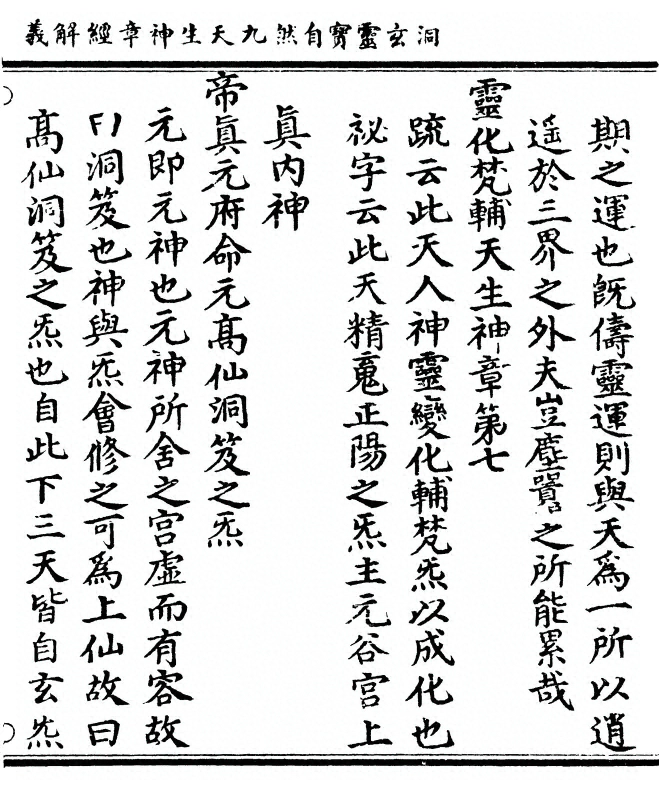 洞玄靈寶自然九天生神章經解義
期之運也旣儔靈運則與天爲一所以逍
遥於三界之外夫豈塵囂之所能累哉
靈化梵輔天生神章第七
疏云此天人神靈變化輔梵炁以成化也
祕字云此天精䰟正陽之炁主元谷宫上
眞内神
帝眞元府命元髙仙洞笈之炁
元即元神也元神所舍之宫虚而有容故
洞笈也神與炁會修之可爲上仙故曰
髙仙洞笈之炁也自此下三天皆自玄炁